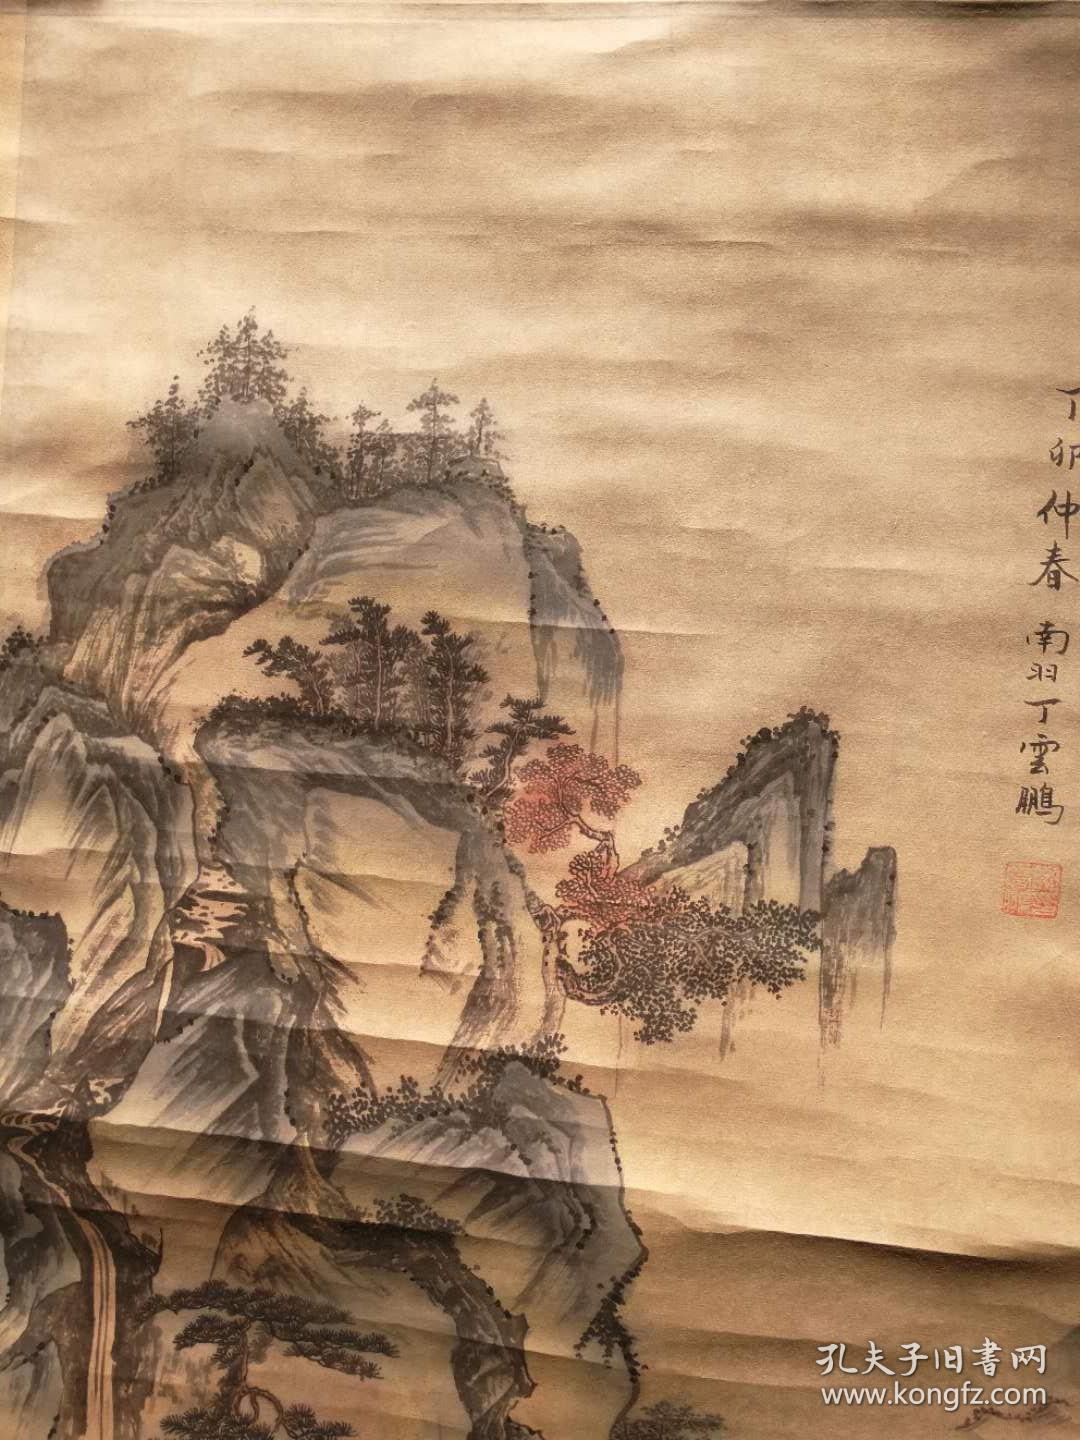 丁卯仲春 南羽丁雲鵬
孔夫子旧書网
www.kongfz.com